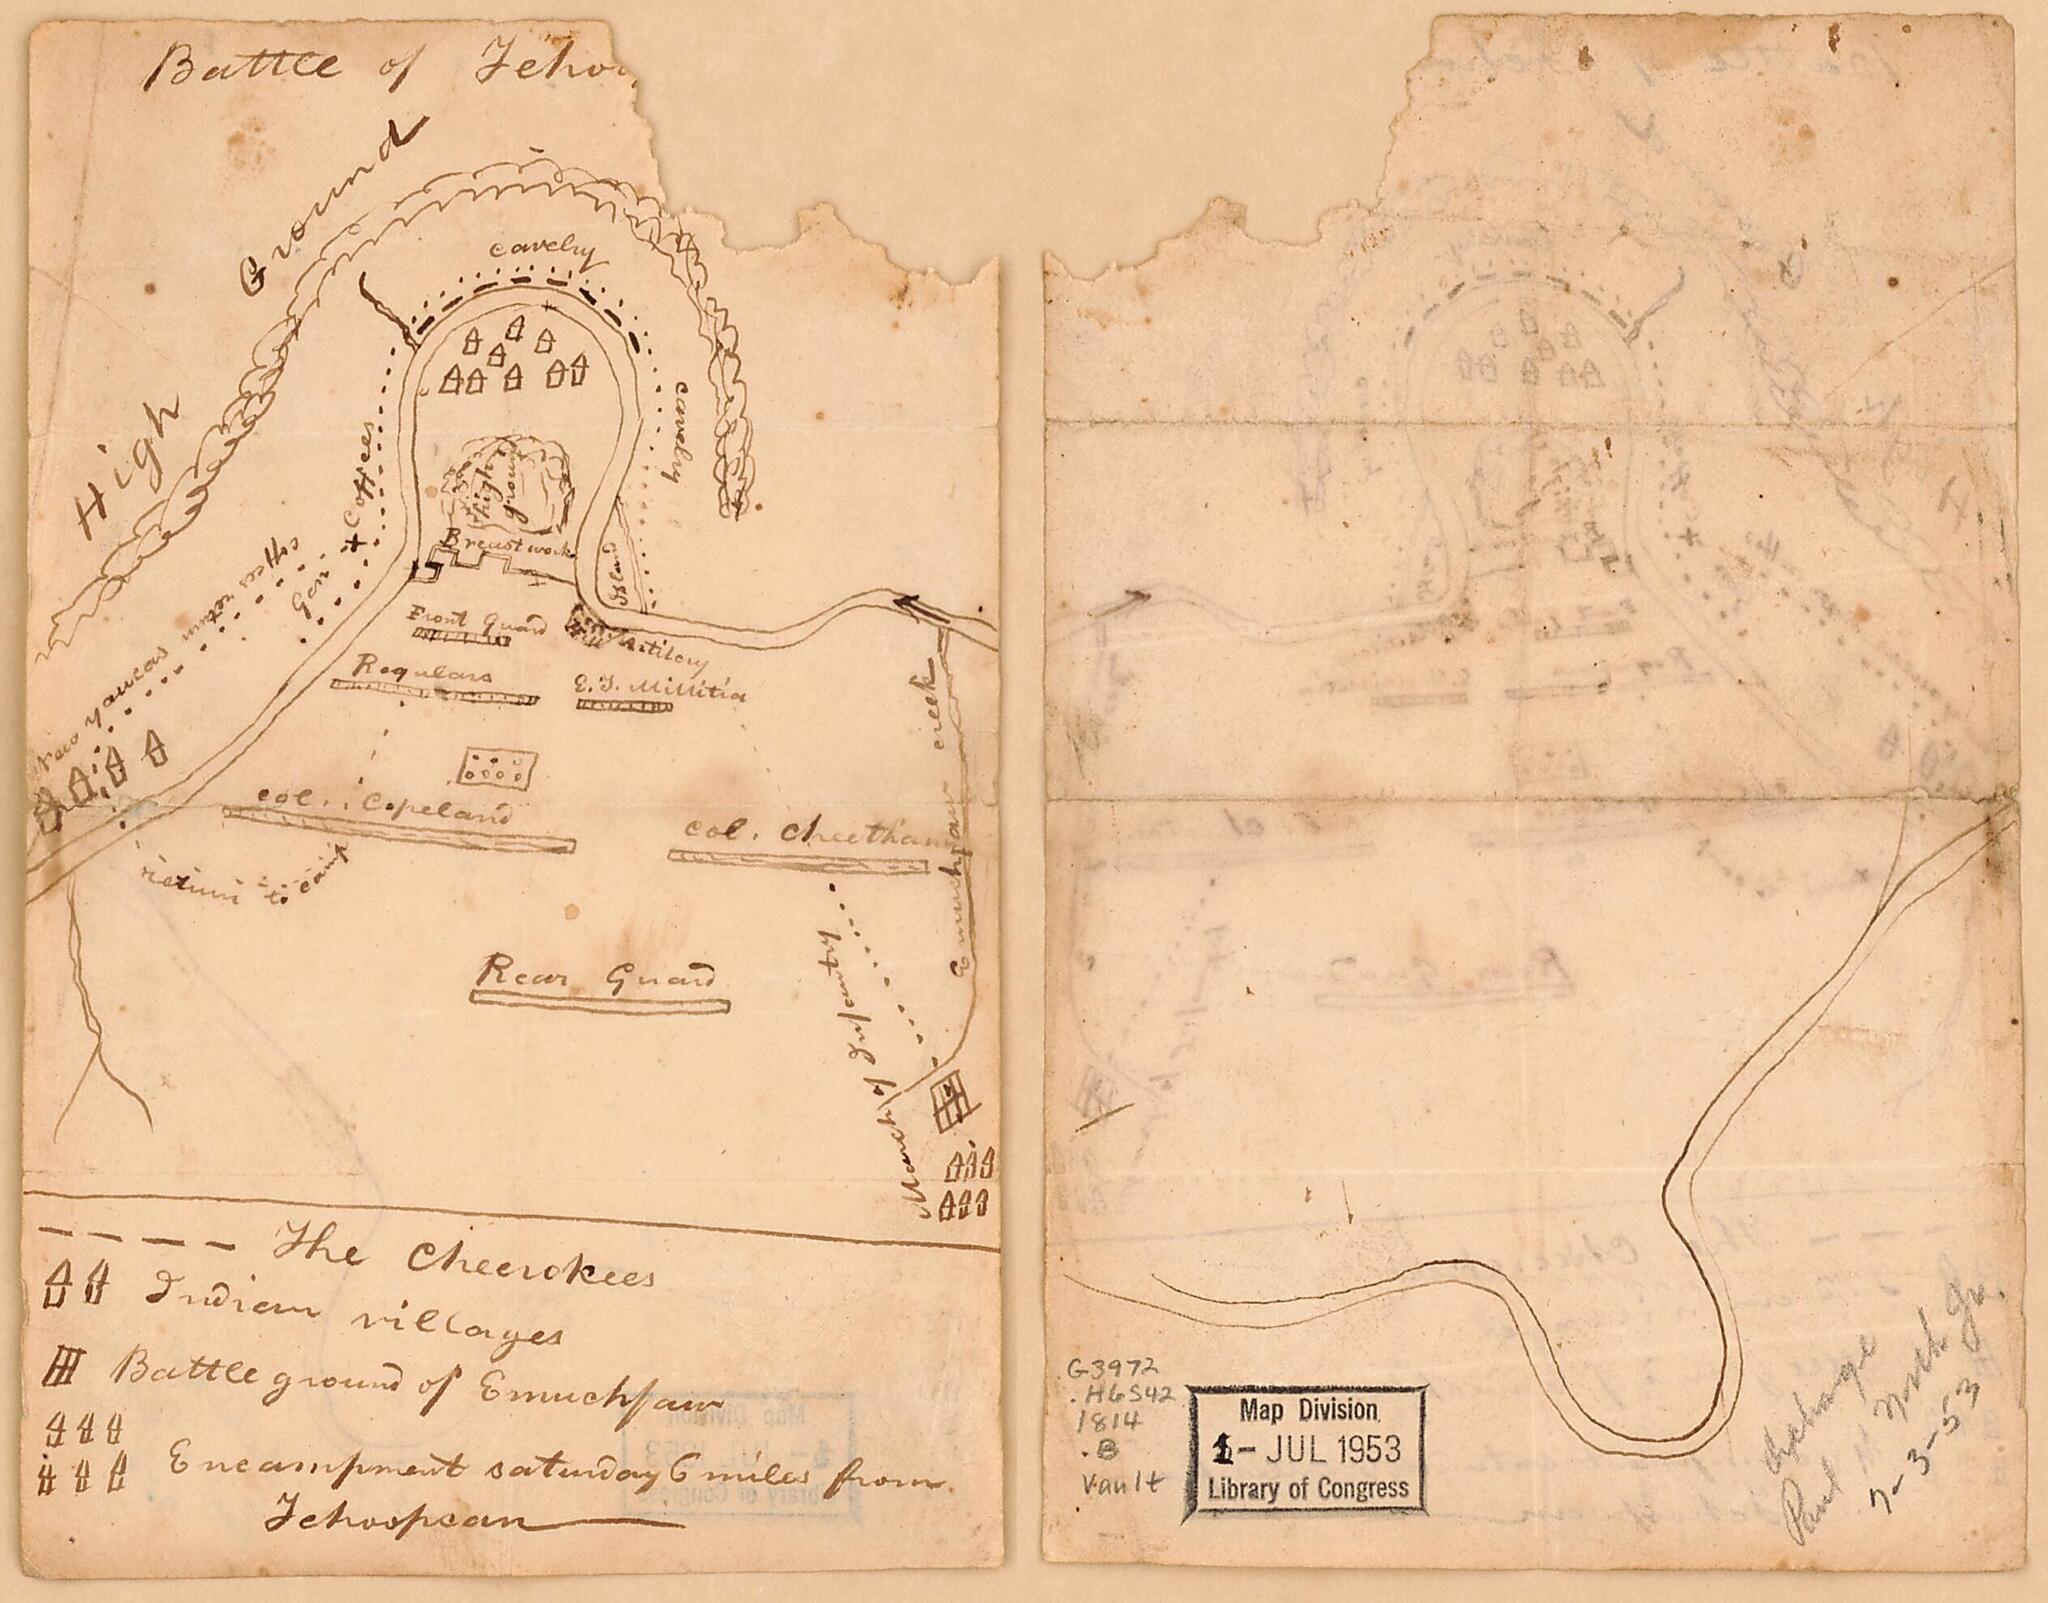 Battle of Tehoo
High Ground
cavelry
cavelry
Gen Coffees
high
ground
Breastwork
Island
New yaucas return coffees
Front Guard
Artilery
Regulars
E. T. Millitia
creek
Emuchfaw
col. Copeland
col. Cheetham
return to camp
Rear Guard
March of Infantry
The Cheerokees
Indian villages
Battle ground of Emuchfaw
Encampment saturday 6 miles from
Tehoopcan
G3972
.H6S42
1814
.B
Vault
Map Division
1 - JUL 1953
Library of Congress
exchange
Paul H. North Jr.
7-3-53